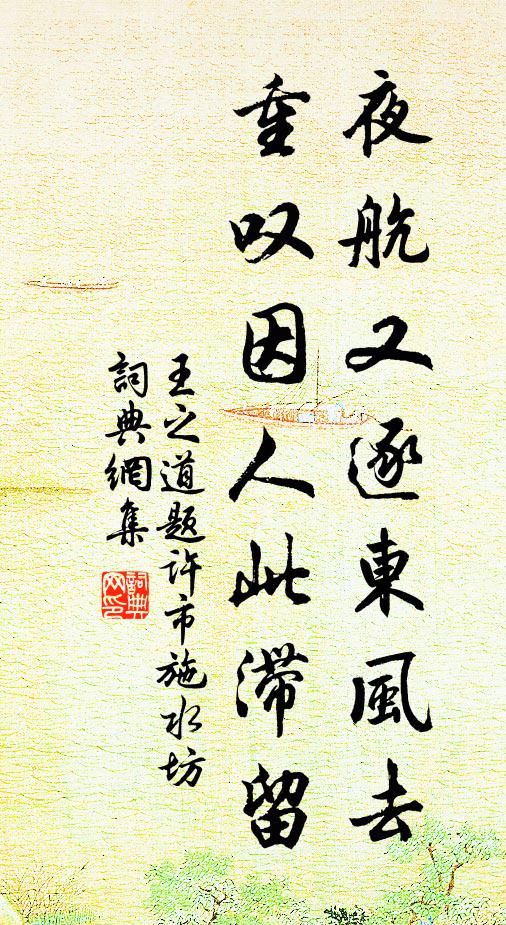 夜航又逐東風去
重叹因人此滞留
王之道题许市施水坊
詞典網集
詞典网印